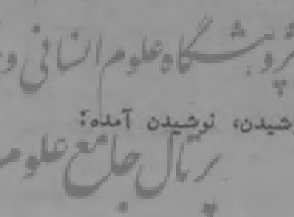 پژوهشگاه علوم انسانی و
شیدن، نوشیدن آمده:
پرتال جامع علوم